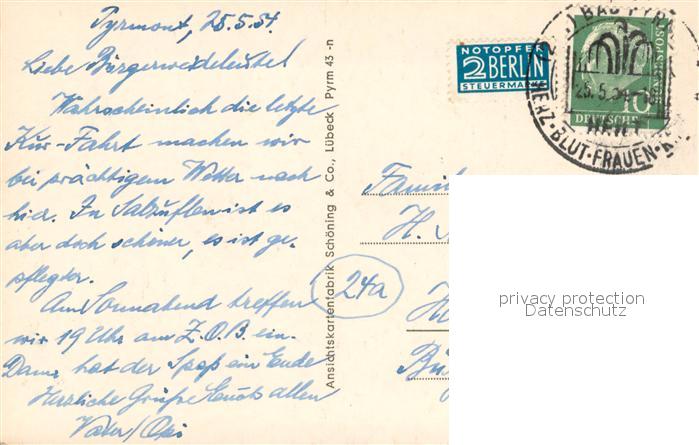 Pyrmont, 25.5.54.
Liebe Bürgerweideleutel
Wahrscheinlich die letzte
Kur-Fahrt machen wir
bei prächtigem Wetter nach
hier. In Salzuflen ist es
aber doch schöner, es ist ge-
pflegter.
Am Sonnabend treffen
wir 19 Uhr am Z.O.B. ein.
Dann hat der Spaß ein Ende
Herzliche Grüße Euch allen
Vater/Opi
Ansichtskartenfabrik Schöning & Co., Lübeck Pyrm 43 -n
NOTOPFER
2 BERLIN
STEUERMARKE
BAD PYR
25.5.54
HERZ·BLUT·FRAUEN·
10
DEUTSCHE
BUNDESPOST
Famil
H.
24a
H
Bü
privacy protection
Datenschutz